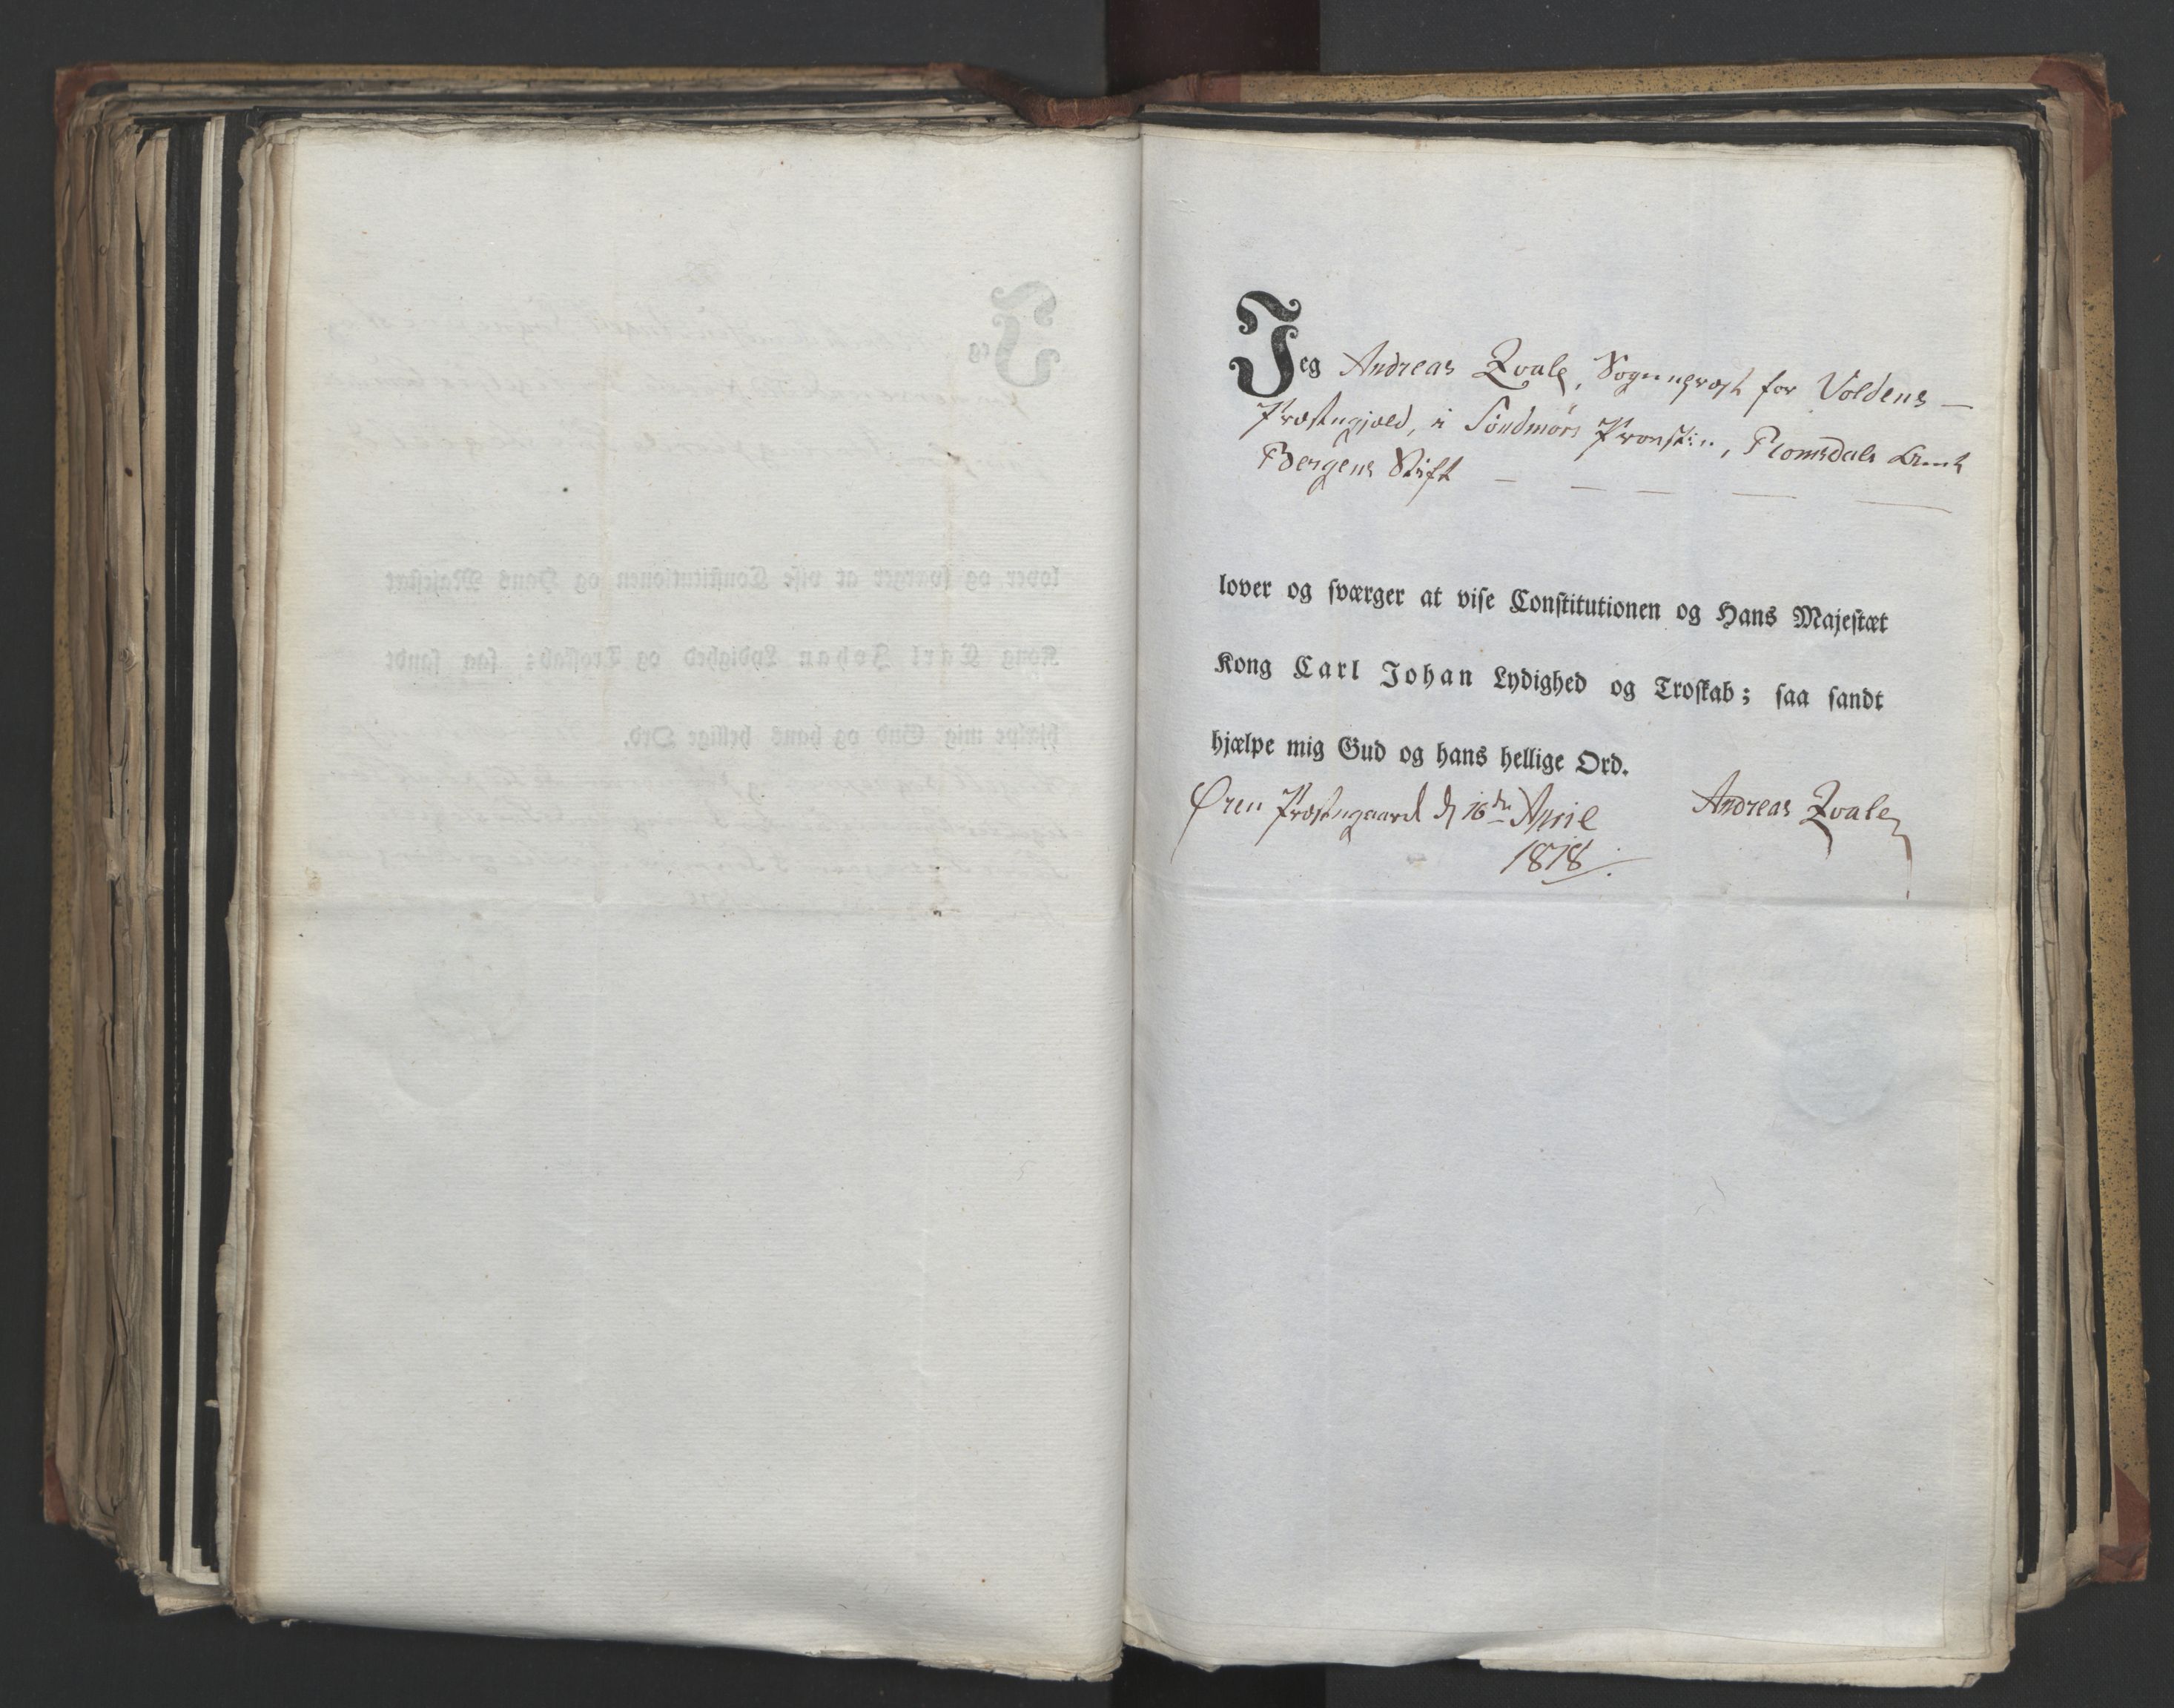 Jeg Andreas Qvale, Sogneprest for Voldens —
Præstegjæld, i Søndmørs Provstie, Romsdals Amt
Bergens Stift — — — — —
lover og sværger at vise Constitutionen og Hans Majestæt
Kong Carl Johan Lydighed og Troskab; saa sandt
hjælpe mig Gud og hans hellige Ord.
Øren Præstegaard d 16de April Andreas Qvale
1818.